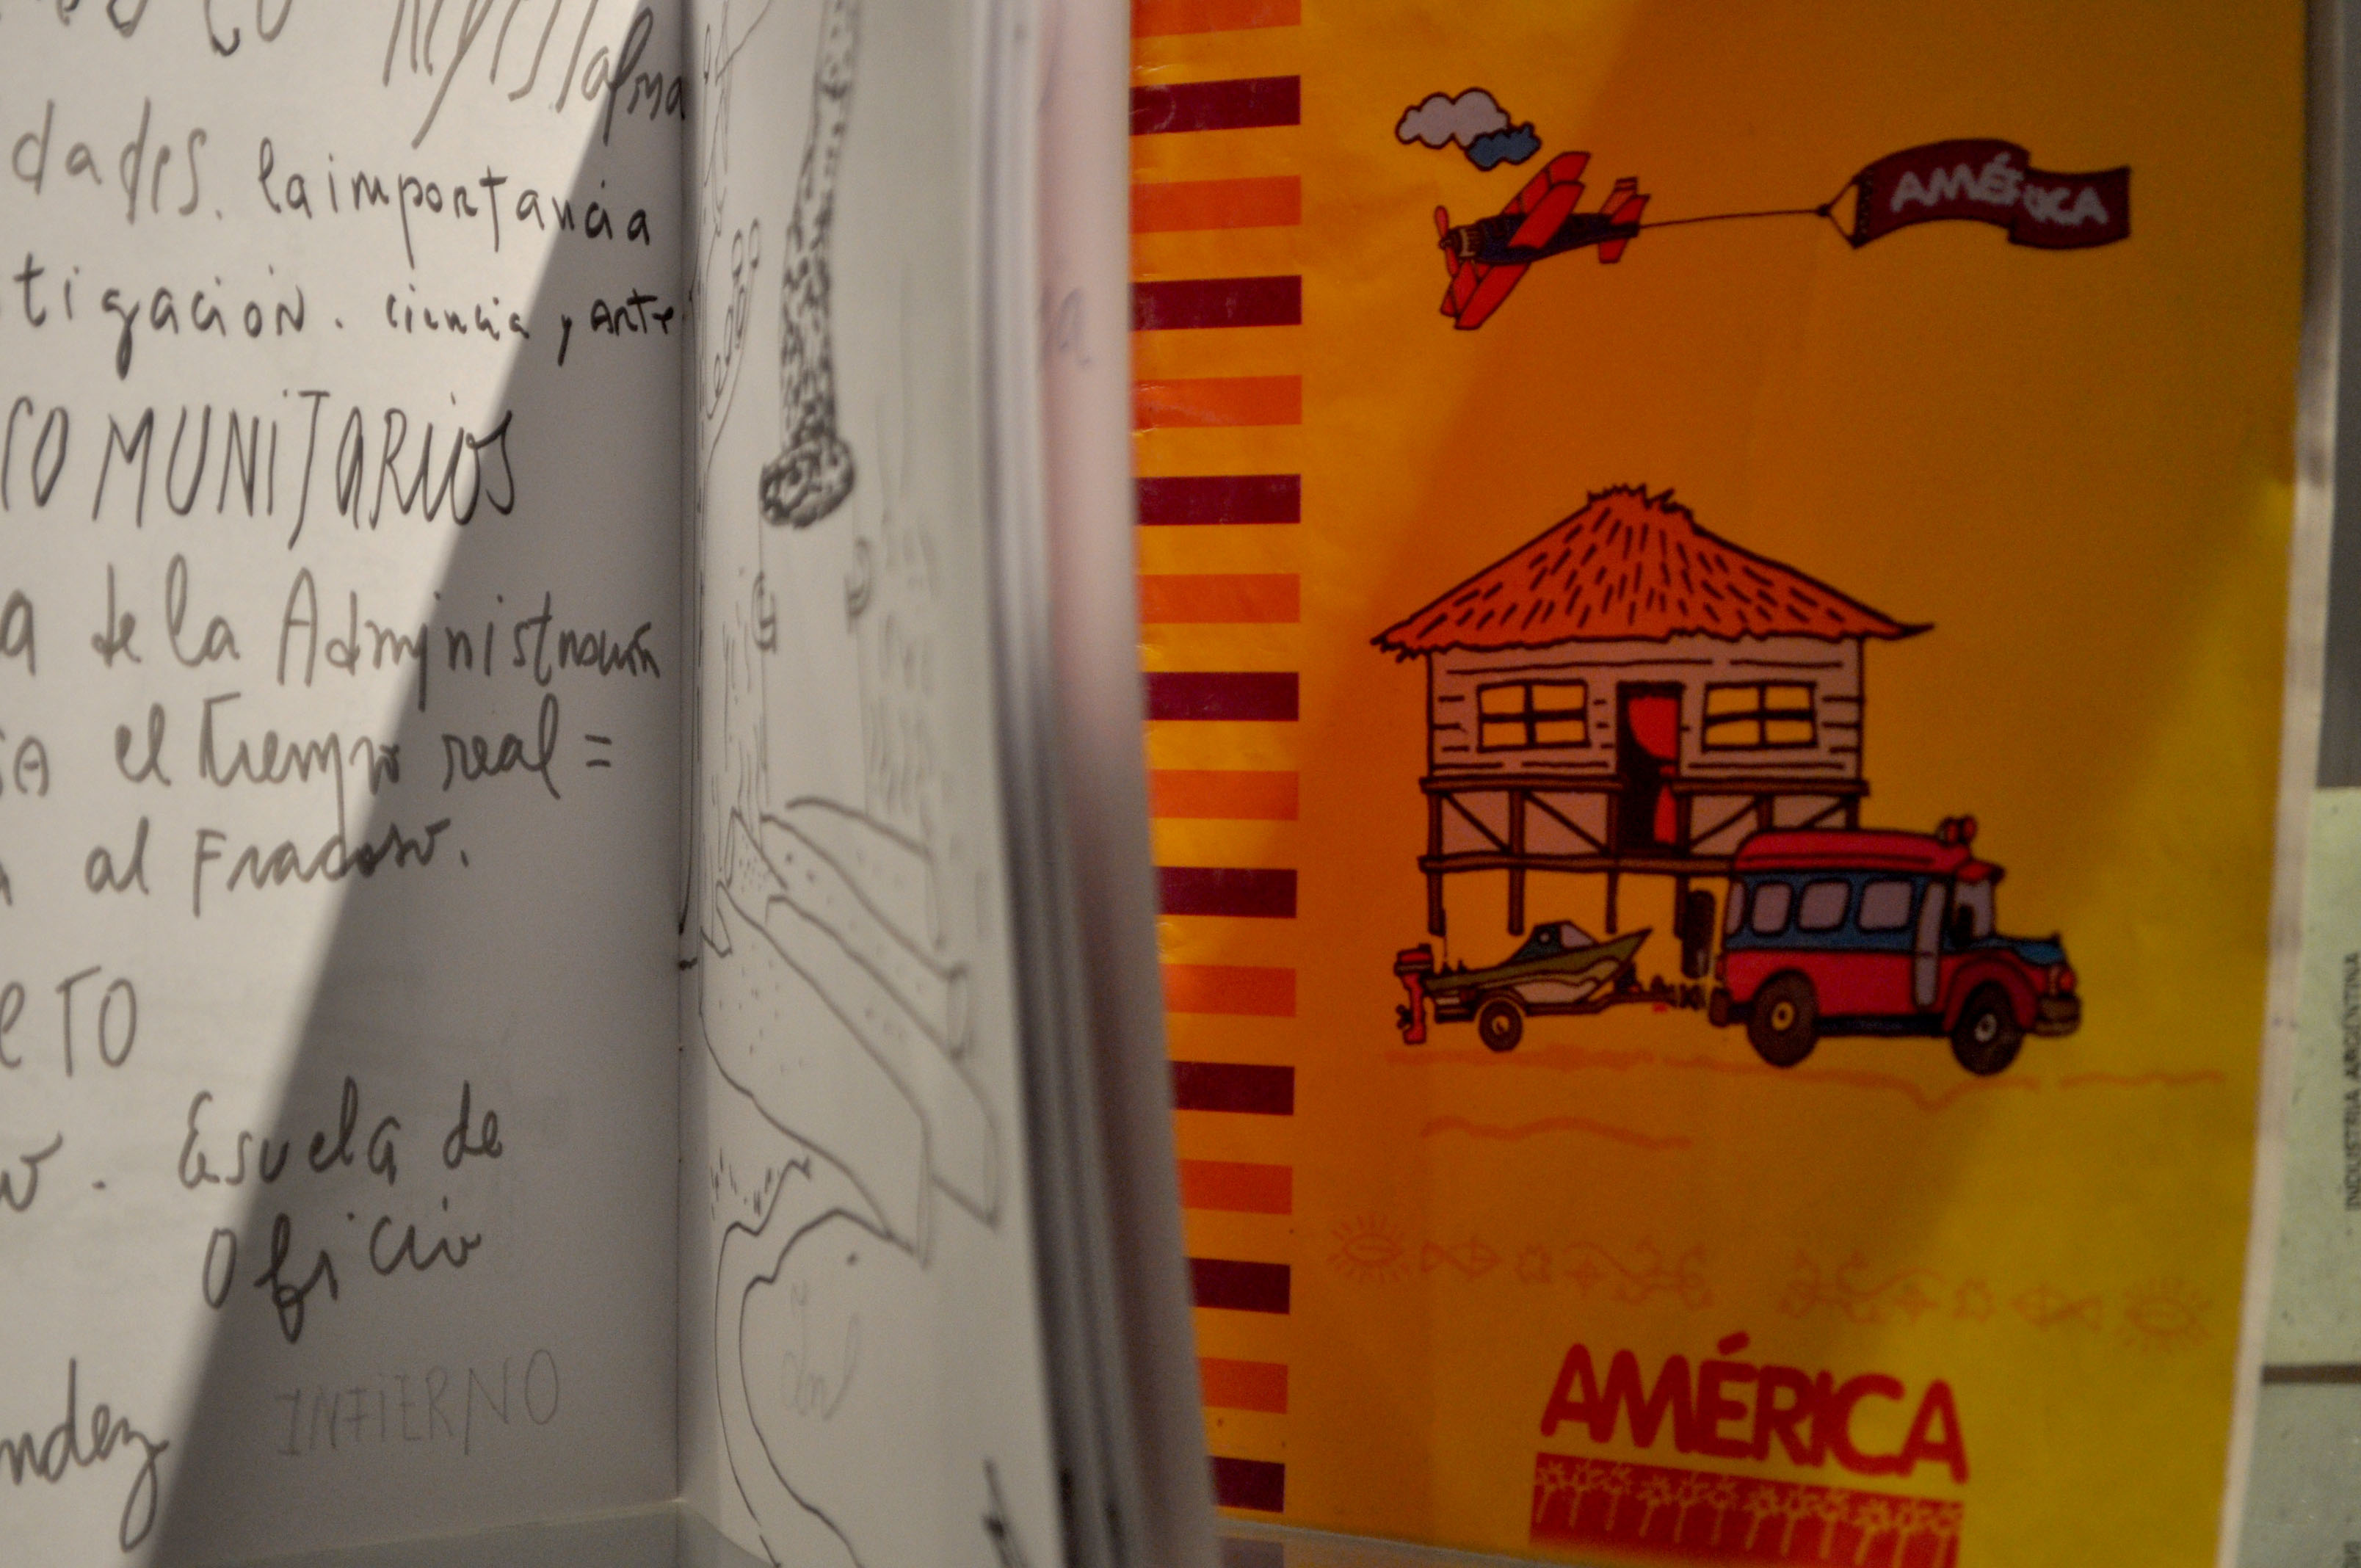 dades. la importancia
tigación. ciencia y Arte
COMUNITARIOS
a de la Administración
el tiempo real =
al Fracaso.
eTO
Escuela de
Oficio
INFIERNO
ndez
AMÉRICA
AMÉRICA
INDUSTRIA ARGENTINA